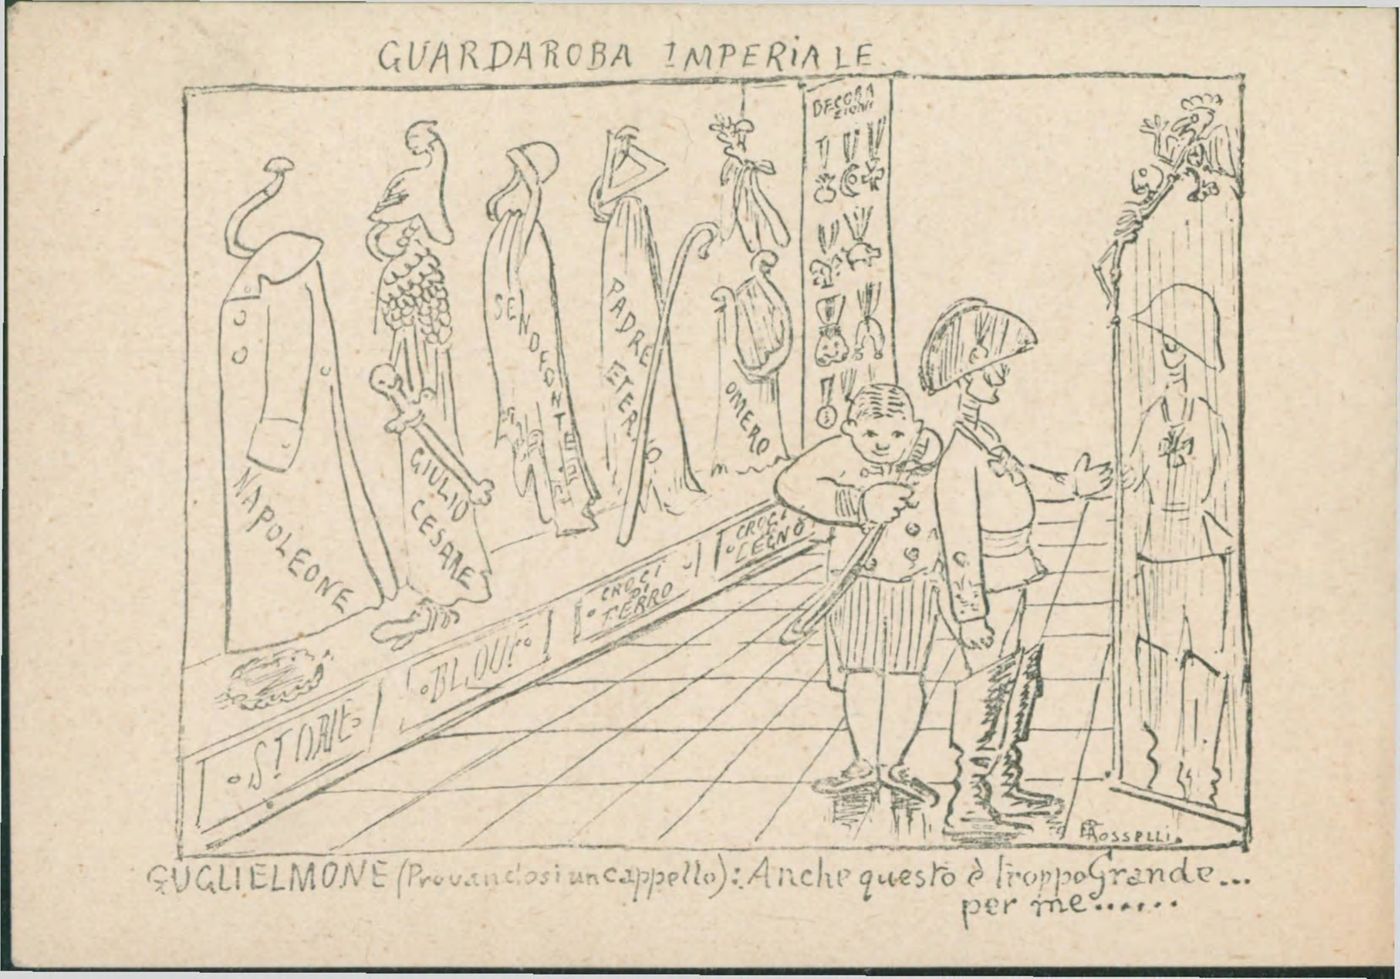 GUARDAROBA IMPERIALE
DECORA
ZIONI
NAPOLEONE
GIULIO
CESARE
SENOFONTE
PADRE
ETERNO
OMERO
STORIE
CROCI
DI
FERRO
CROCI
DI
LEGNO
ROSSELLI.
GUGLIELMONE (Provandosi un cappello): Anche questo è troppo Grande...
per me......